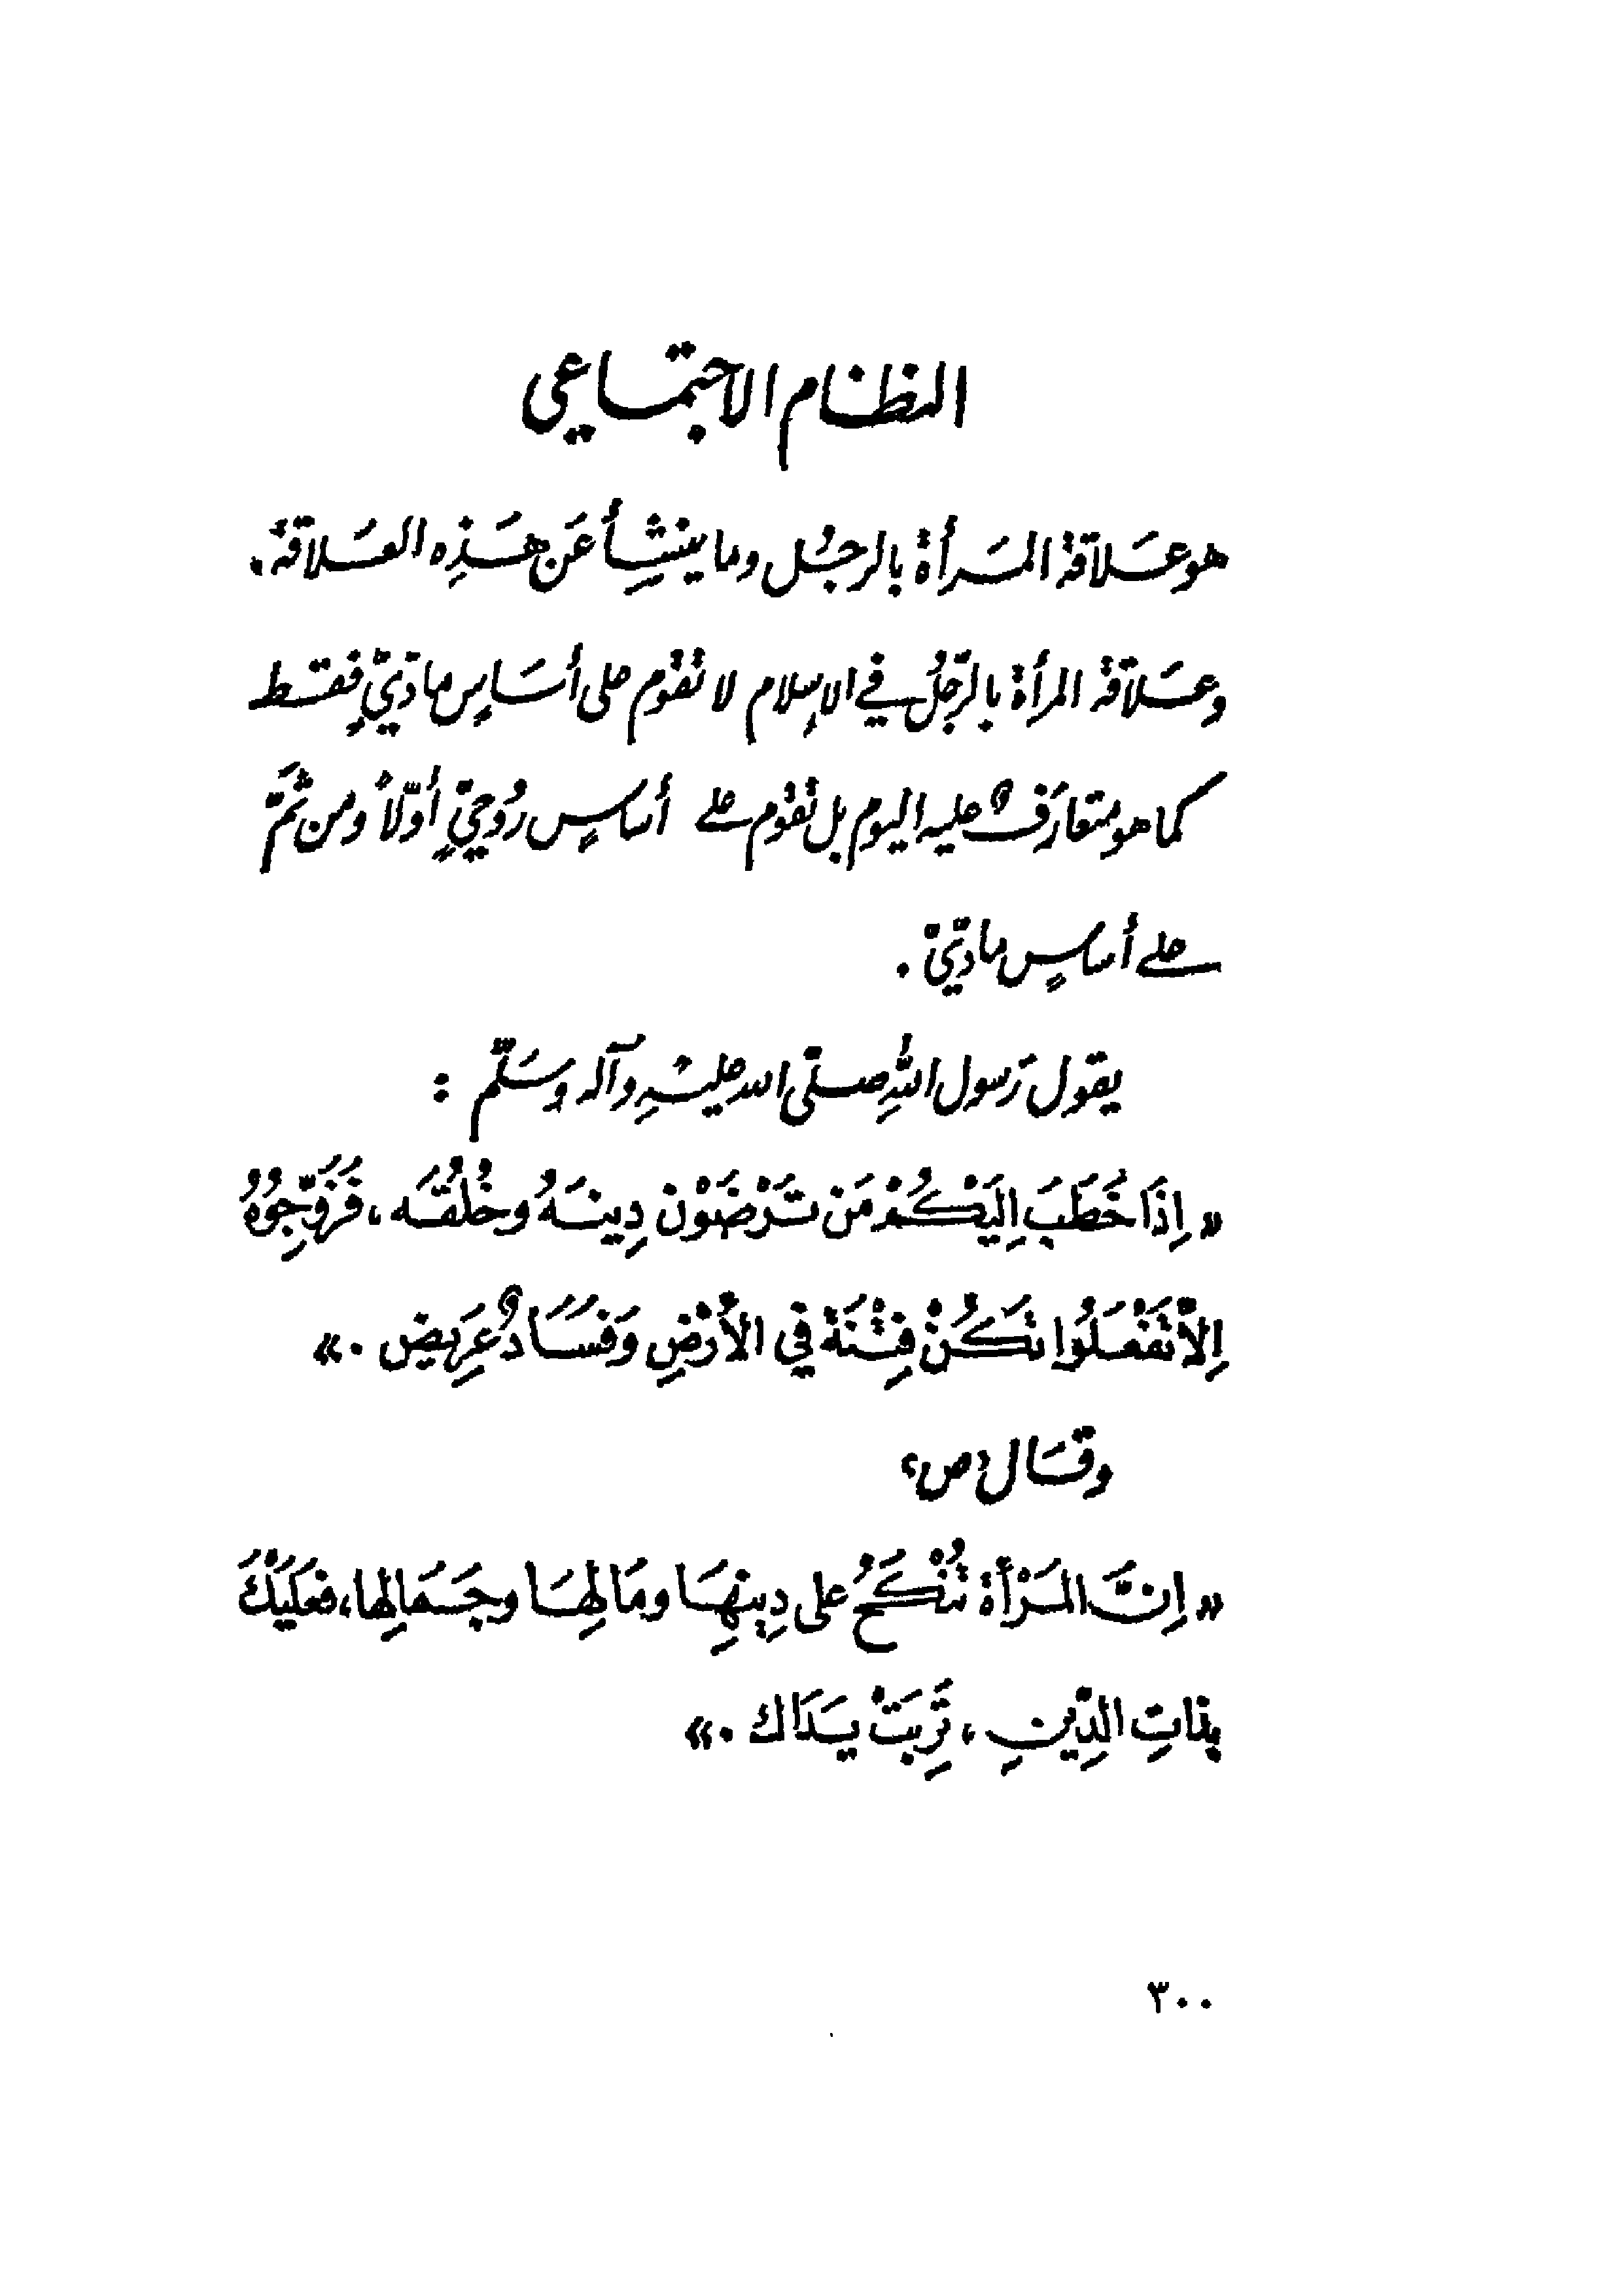 النظام الاجتماعي
هو عَلاقة المَرأة بالرجُل وما ينشأ عَن هَذِه العَلاقة.
وعَلاقة المرأة بالرّجُل في الإسلام لا تقُوم على أسَاسٍ مادّيٍّ فقط
كما هو متعارَفٌ عليه اليوم بل تقُوم على أساسٍ رُوحيٍّ أوّلاً ومن ثَمَّ
على أساسٍ مادّيّ .
يقول رَسول اللهِ صلّى الله عليْهِ وآله وسَلّم :
« اِذَا خَطَبَ اِلَيْكُمْ مَن تَرْضَوْن دِينَهُ وخُلُقَه، فَزَوِّجُوهُ
اِلاّ تَفْعَلُوا تَكُنْ فِتْنَة في الأَرْضِ وَفَسَادٌ عَرِيض .»
وقَال «ص»
« اِنَّ المَرْأة تُنْكَحُ على دِينِهَا ومَالِهَا وجَمَالِها، فعَلَيْكَ
بِذاتِ الدِّينِ ، تَرِبَتْ يَدَاك .»
٣٠٠